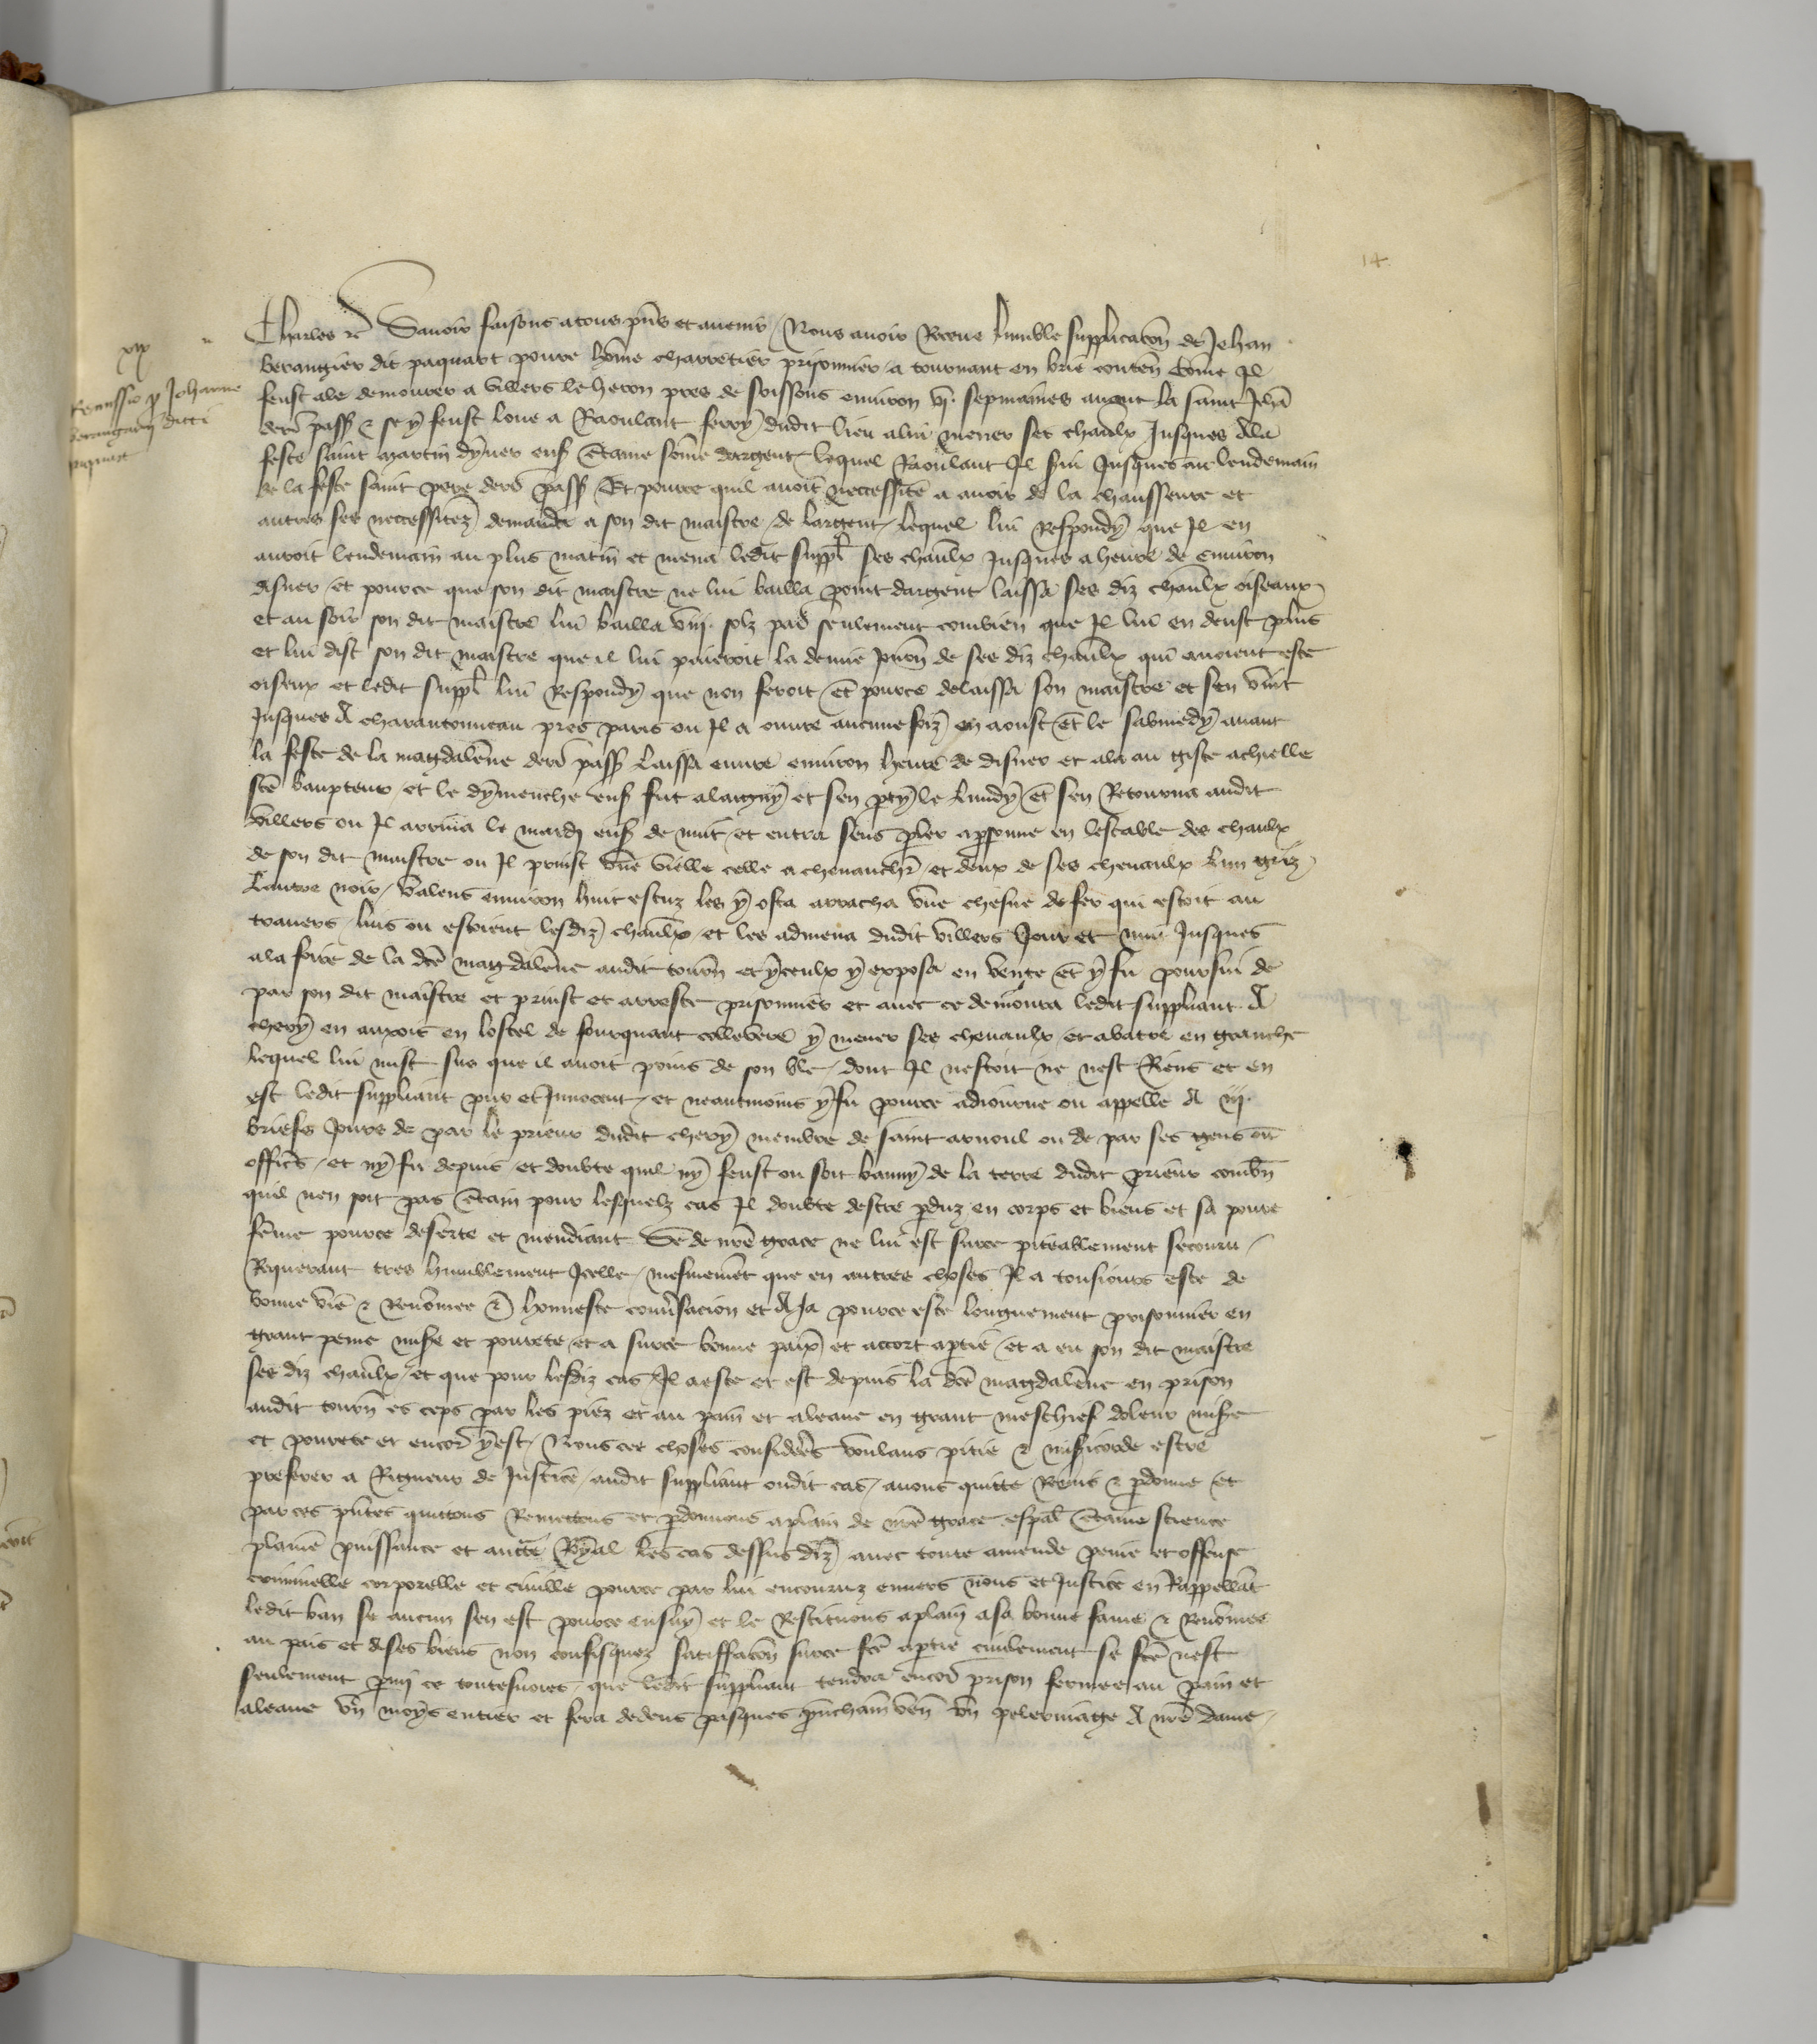 14
xix
Remissio p Johanne
berangarii dicti
paquart
Charles &c Savoir faisons a tous pñs et avenir / Nous avoir Receue lumble supplicacõn de Jehan
berangier dit paquart povre hõme charretier prisonnier / a tournant en brie contenã Cõme Il
feust ale demourer a villers le heron pres de soissons environ vj. sepmaines avant la saint Jehã
derr̃ pass̃ & se ỹ feust loue a Raoulant ferry dudit lieu a lui mener ses chaũlx Jusques A la
feste saint martin dỹver ens̃ c̃taine sõme dargent / lequel Raoulant Il servi Jusques au lendemain
de la feste saint pere derr̃ pass̃ Et pource quil avoit neccessite a avoir de la chaussure et
autres ses neccessitez demanda a son dit maistre / de largent / lequel lui Respondy que Il en
auroit lendemain au plus matin et mena ledit supp̃l ses chaũlx Jusques a heure de environ
disner / et pource que son dit maistre ne lui bailla point dargent laissa ses diz chaũlx oiseaux
et au soir son dit maistre lui bailla viij. solz par̃ seulement combien que Il lui en deust plus
et lui dist son dit maistre que il lui paieroit la demie Jorñ de ses diz chaũlx qui avoient este
oiseux et ledit supp̃l lui Respondy que non feroit Et pource delaissa son maistre et sen vint
Jusques A charantonneau pres paris ou Il a ouvre aucune foiz en aoust Et le sabmedy avant
la feste de la magdalẽne derr̃ pass̃ Laissa euvre environ heure de disner et ala au giste a chielle
ste baupteur / et le dymenche ens̃ fut a laigny et sen p̃ty le Lundy Et sen Retourna audit
villers ou Il arriva le mardj ens̃ de nuit / et entra sens p̃ler a p̃sonne en lestable des chaũlx
de son dit maistre ou Il prinst vne vielle celle a chevauchr̃ / et deux de ses chevaulx Lun griz
Lautre noir / valens environ huit escuz les y osta arracha vne chesne de fer qui estoit au
travers / luis ou estoient lesdiz chaũlx / et les admena dudit villers Jour et nuit Jusques
a la foire de la dc̃e magdalẽne audit tourñ et yceulx y exposa en vente Et y fu poursui de
par son dit maistre et prinst et arreste prisonnier et avec ce demoura ledit suppliant A
chery en auxois en lostel de fourquant y mener ses chevaulx / et abatre en granche
Lequel lui mist sus que il avoit poins de son ble / dont Il nestoit ne nest Riens et en
est ledit suppliant pur et Innocent / et neantmoins y fu pource adiourne ou appelle A iij.
briefs Jours de par le prieur dudit chery membre de saint arnoul ou de par ses gens ou
offic̃s / et ny fu depuis / et doubte quil ny feust ou soit banny de la terre dudit prieur combñ
quil nen soit pas c̃tain pour lesquelz cas Il doubte destre p̃duz en corps et biens et sa povre
fẽme pource deserte et mendiant Se de nr̃e grace ne lui est surce piteablement secouru /
Requerant tres humblement Icelle / mesmemẽt que en autres choses Il a tousiours este de
bonne vie & Renõmee & honneste conv̾sacion et A Ja pource este longuement prisonnier en
grant peine mis̃e et povrete / et a surce bonne paix et accort a p̃tie / et a eu son dit maistre
ses diz chaũlx / et que pour lesdiz cas Il a este et est depuis la dc̃e magdalẽne en prison
audit tourñ es ceps par les piez et au pain et a leaue en grant meschief doleur mis̃e
et povrete et encor̃ y est / Nous ces choses considerẽs voulans pitie & mis̃icorde estre
preferer a Rigueur de Justice / audit suppliant oudit cas / avons quitte Remis & p̃donne Et
par ces pñtes quittons Remettons et p̃donnons a plain de nr̃e grace esp̃al c̃taine science
plaine puissance et auctẽ Royal les cas dessus diz avec toute amende peine et offense
criminelle corporelle et civille pource par lui encouruz envers nous et Justice en Rappellãt
ledit ban se aucun sen est pource ensuy et le Restituons a plain a sa bonne fame & Renõmee
au pais et a ses biens non confisquez satiffacõn surce fc̃e a p̃tie civilement se fc̃e nest
seulement p̃my ce toutesvoies que ledit suppliant tendra encor̃ prison fermee au pain et
a leaue vñ moys entier et fera dedens pasques p̃nchain ven̾ vñ pelerinage A nr̃e dame